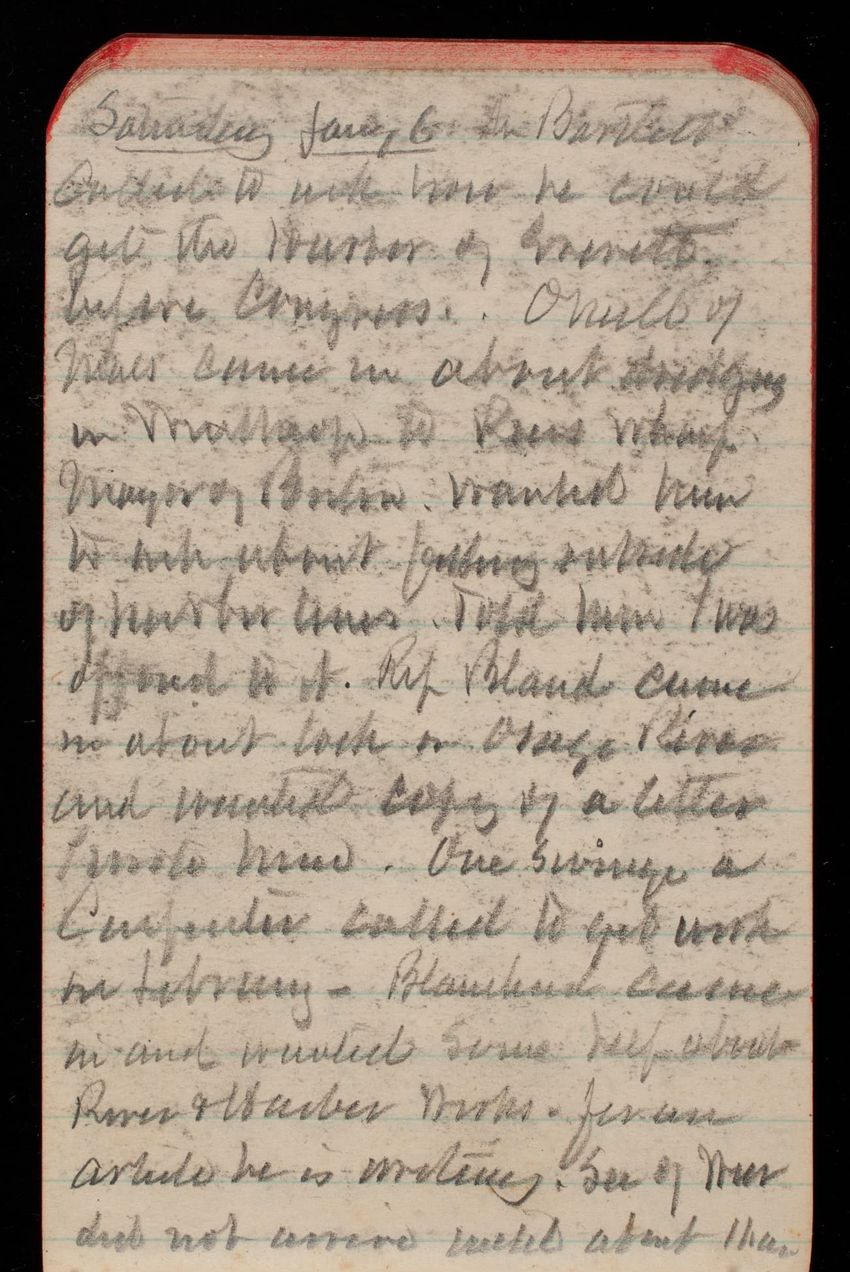 Saturday Jany 6 Mr Bartlett
Called to ask how he could
get the Harbor of Everett
before Congress. O'Neill of
Mass came in about dredging
in to Rices wharf.
Mayor of Boston. Wanted him
to ask about filling outside
of harbor lines. Told him I was
opposed to it. Rep Bland came
in about lock on Osage River
and wanted copy of a letter
I wrote him. One a
Carpenter called to get work
on library - Blanchard came
in and wanted some help about
River & Harbor Works. for an
article he is writing. Sec of War
did not arrive until about 11 a.m.